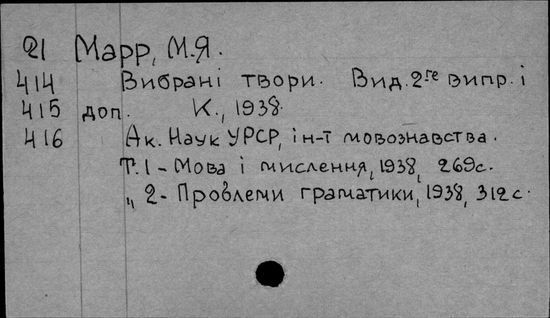 21 Марр, М.Я.
414 Вибрані твори. Вид. 2ге випр. і
415 доп. К., 1938.
416 Ак. Наук УРСР, ін-т мовознавства.
Т. 1 - Мова і мислення, 1938, 269с.
„ 2 - Проблеми граматики, 1938, 312 с.